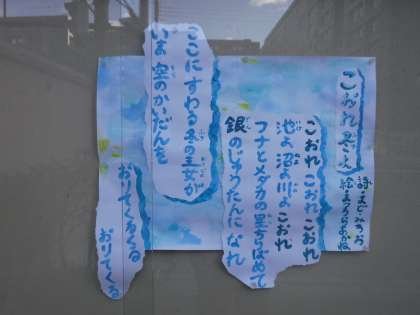 こおれ 冬の火
詩・まどみちお
こおれ こおれ こおれ
池よ 沼よ 川よ こおれ
フナとメダカの星ちりばめて
銀のじゅうたんになれ
ここに すわる 冬の王女が
いま 空のかいだんを
おりてくるくる
おりてくる